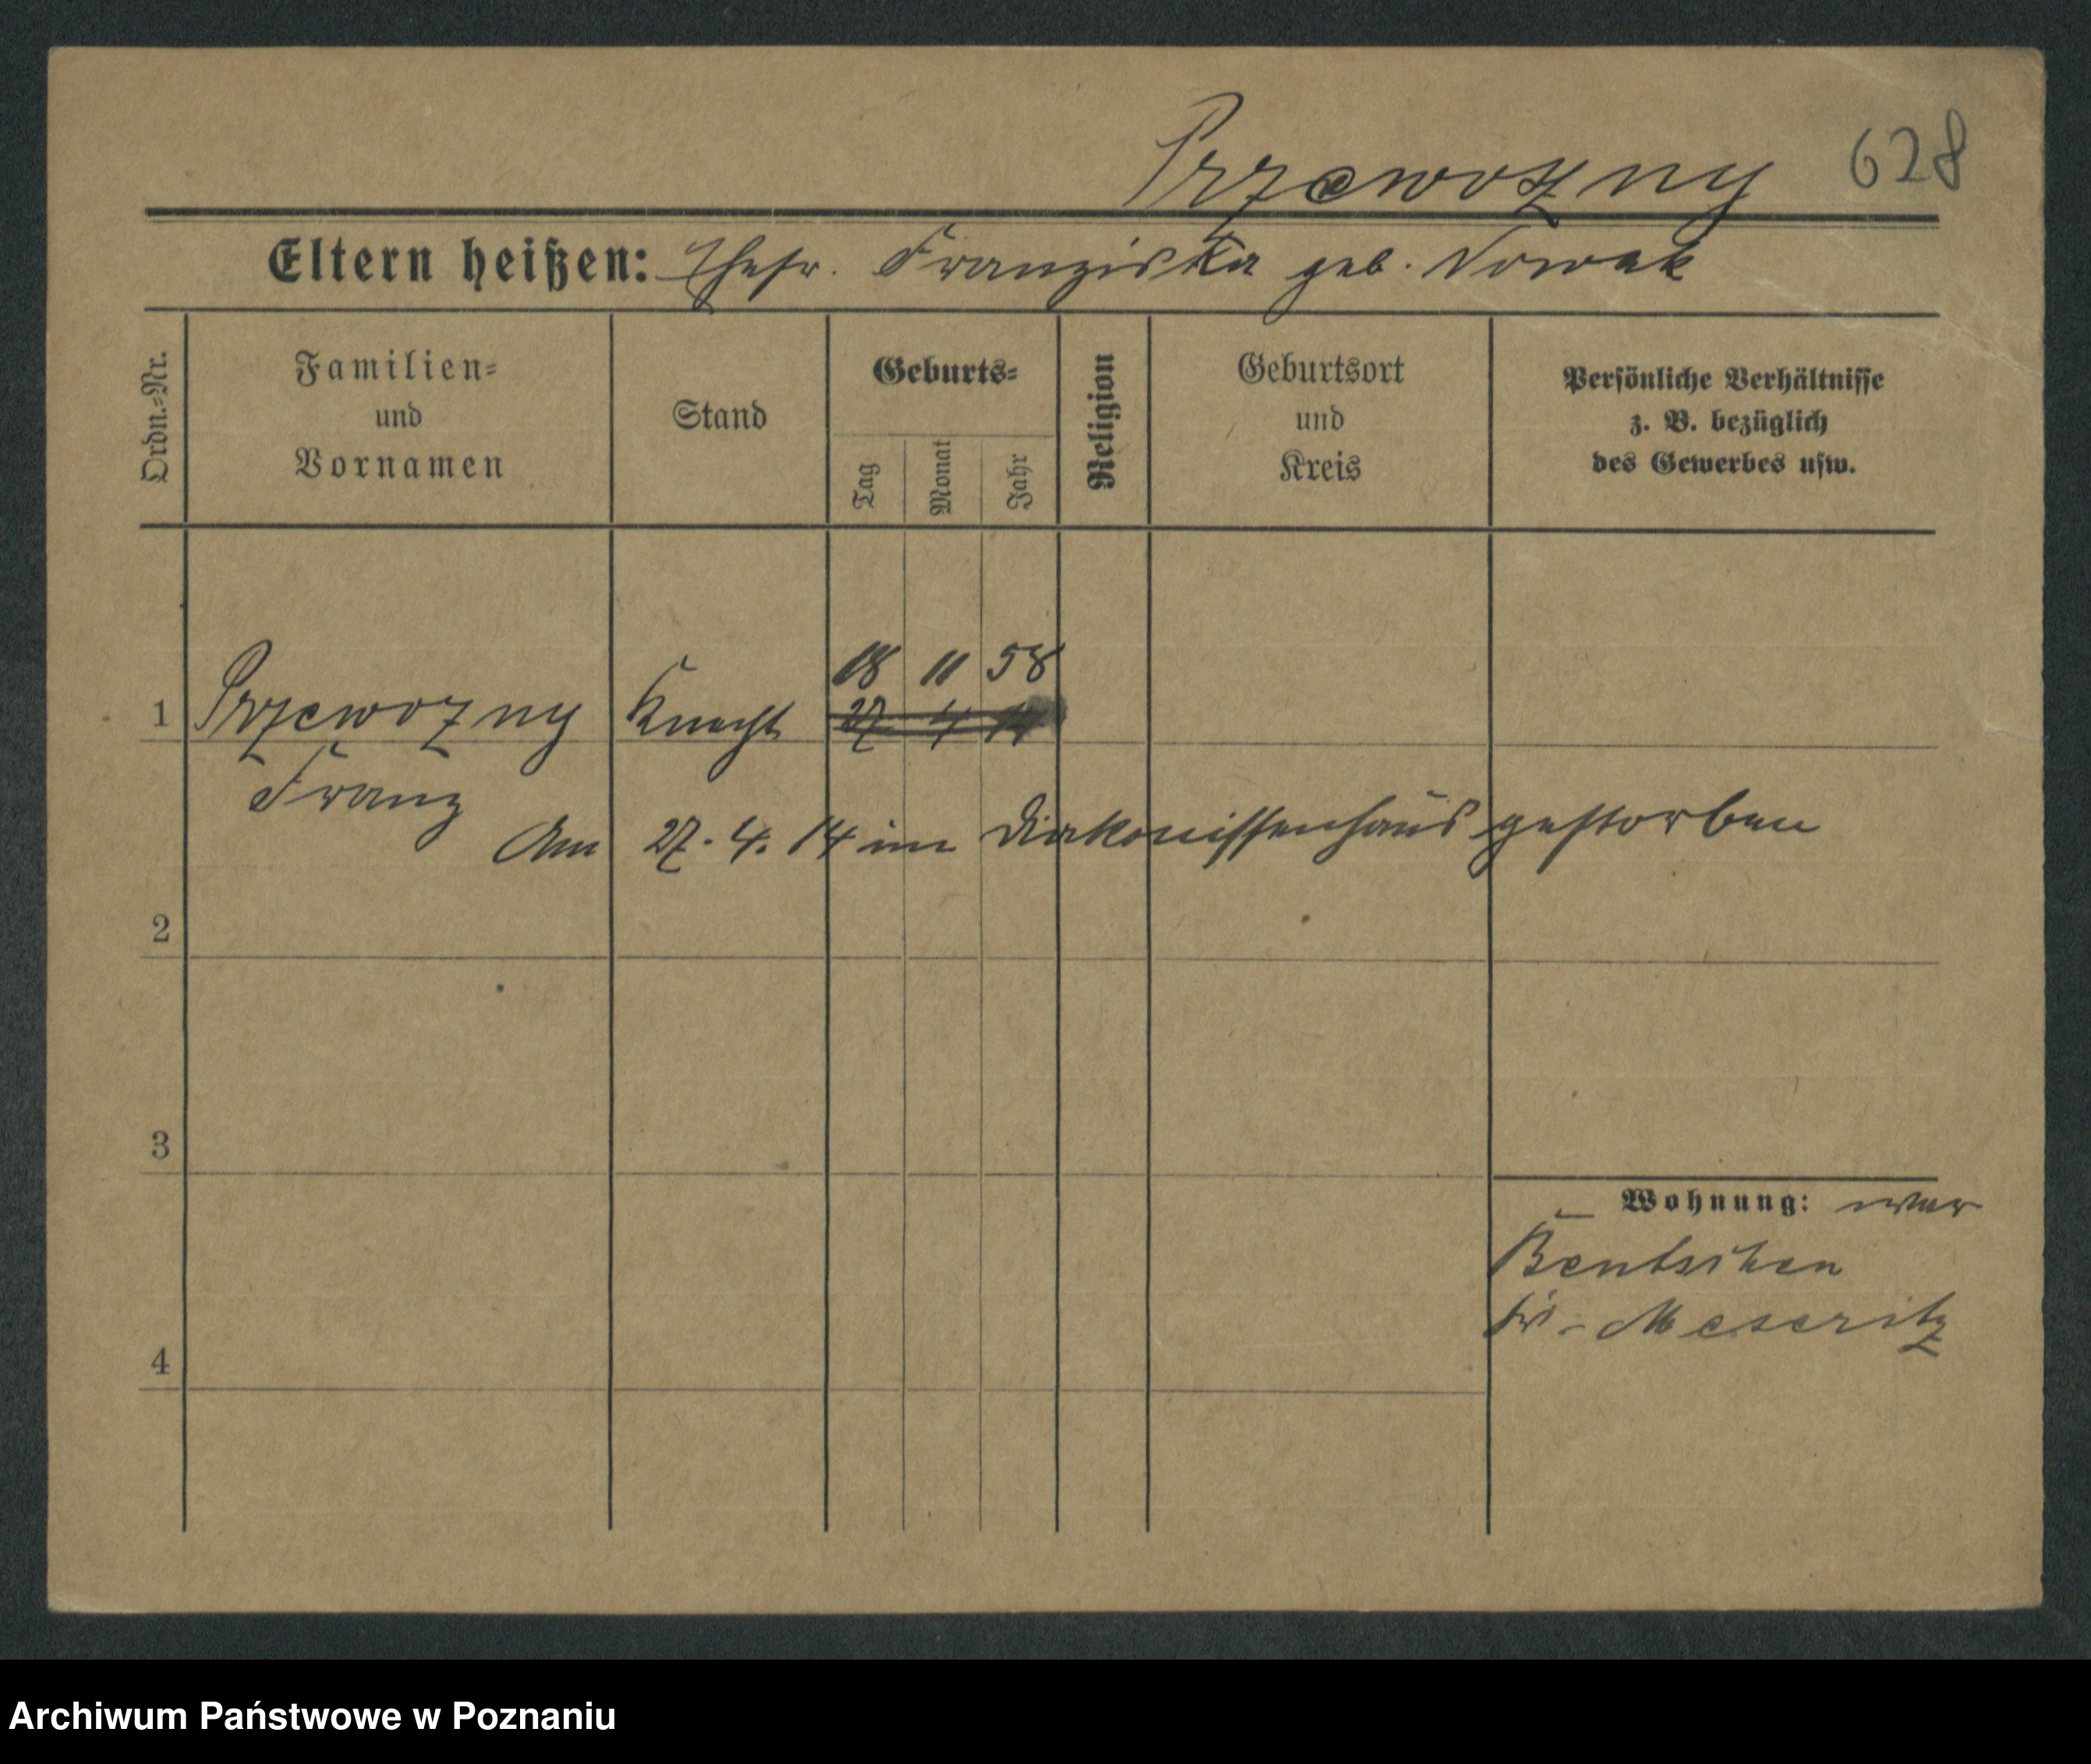 Przewozny 628
Eltern heißen: Ehefr. Franziska geb. Nowak
Ordn.-Nr.
Familien-
und
Vornamen
Stand
Geburts-
Tag
Monat
Jahr
Religion
Geburtsort
und
Kreis
Persönliche Verhältnisse
z. B. bezüglich
des Gewerbes usw.
18 11 58
1 Przewozny Knecht 27 4 14
Franz
Am 27. 4. 14 im Diakonissenhaus gestorben
2
3
Wohnung: war
Bentschen
Kr. Meseritz
4
Archiwum Państwowe w Poznaniu